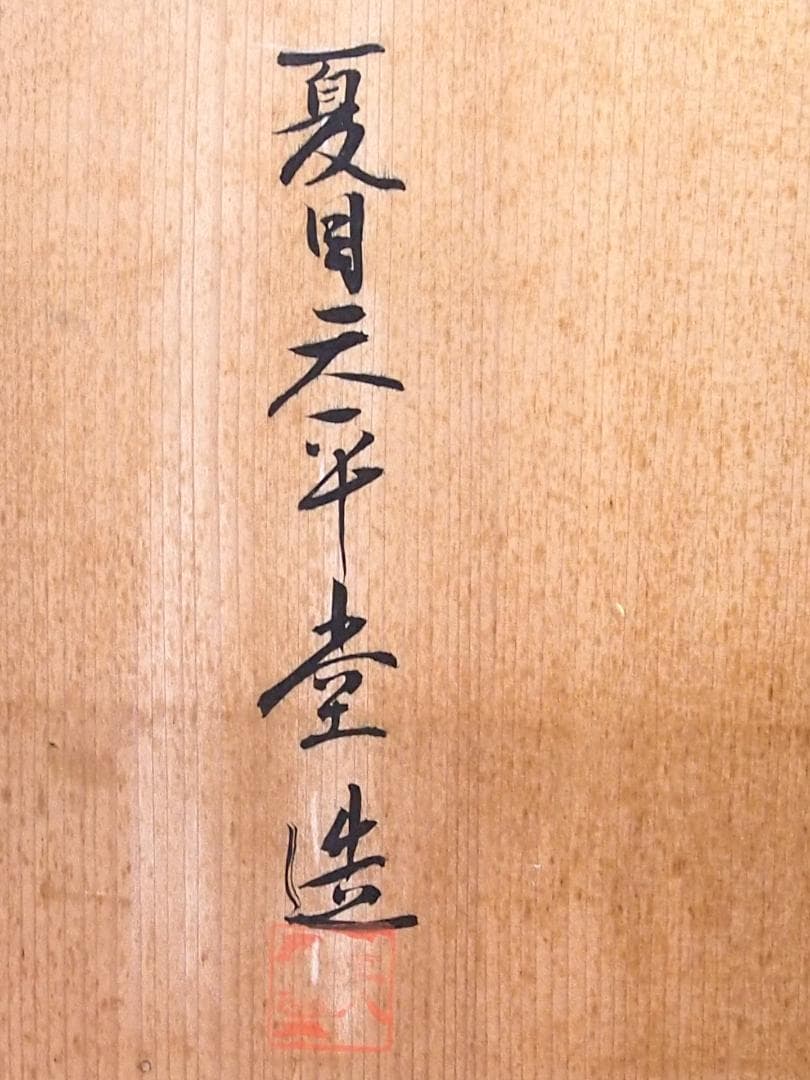 夏目天平堂造